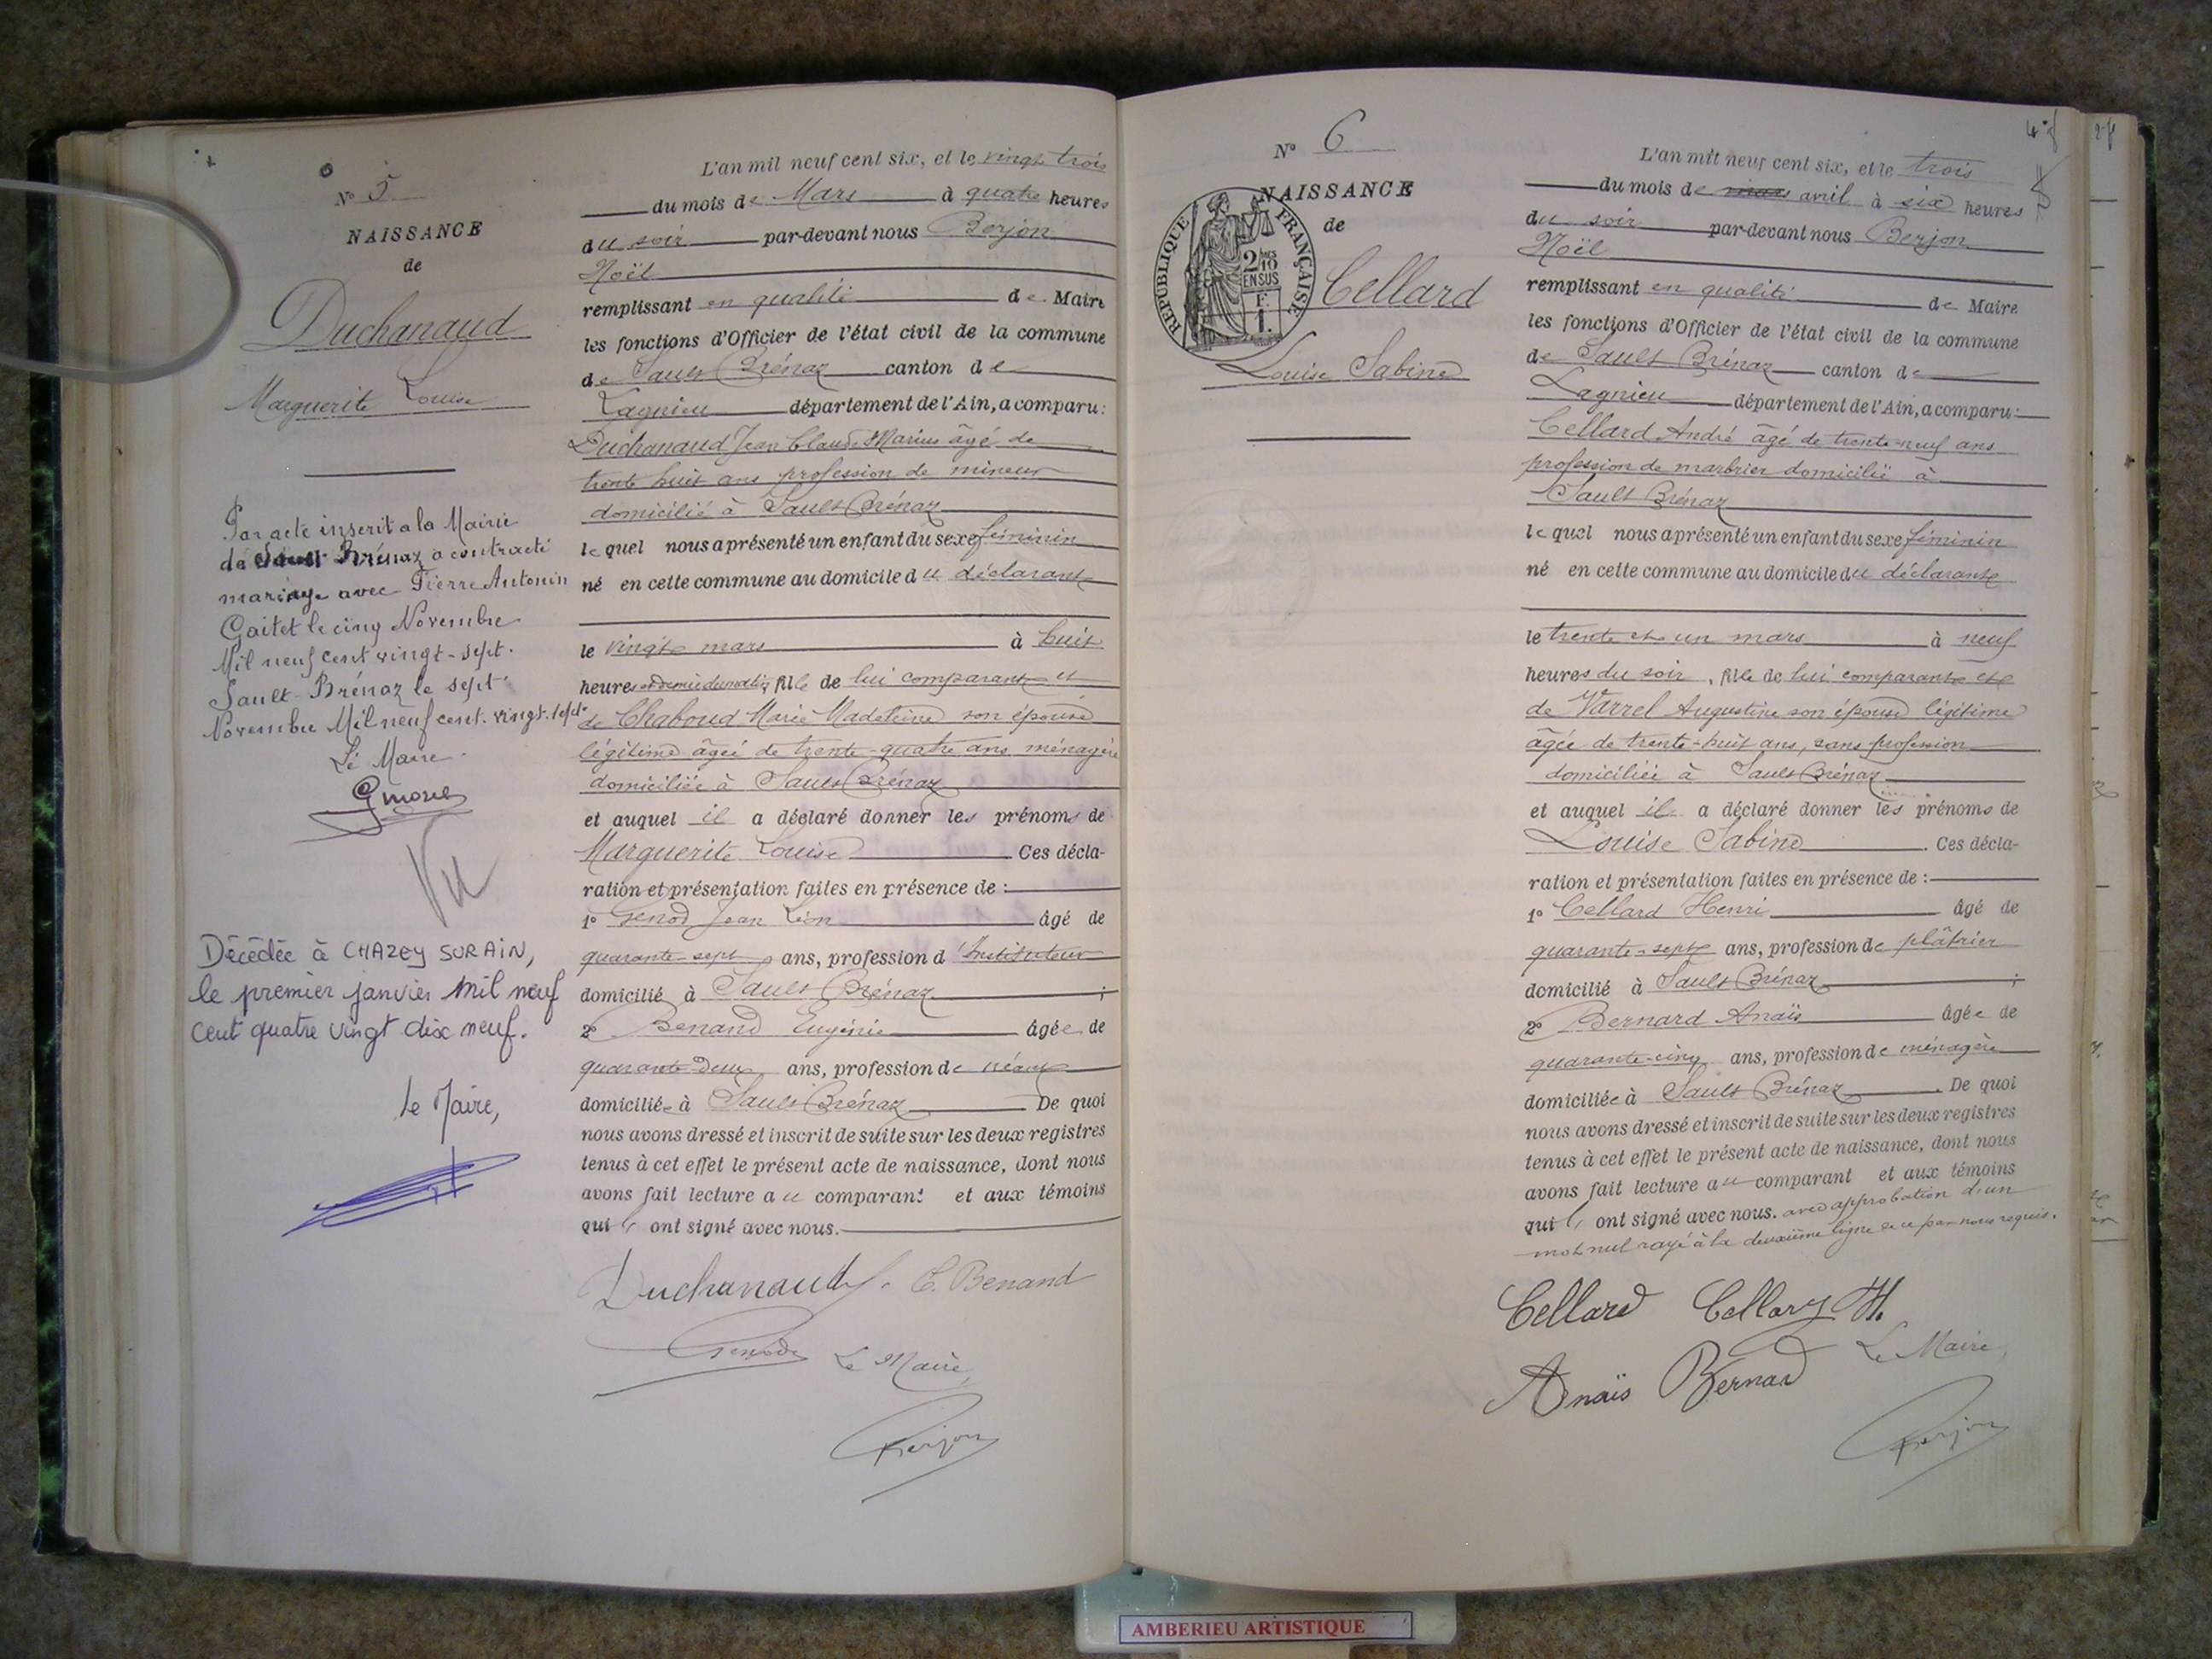 N° 5
NAISSANCE
de
Duchanaud
Marguerite Louise
Par acte inscrit a la Mairie
de Sault Brénaz a contracté
mariage avec Pierre Antonin
Gaitet le cinq Novembre
Mil neuf cent vingt-sept.
Sault-Brénaz le sept
Novembre Mil neuf cent vingt-sept
Le Maire
Vu
Décédée à CHAZEY SUR AIN,
le premier janvier mil neuf
cent quatre vingt dix neuf.
Le Maire,
L'an mil neuf cent six, et le vingt trois
du mois de Mars à quatre heures
du soir par-devant nous Berjon
Noël
remplissant en qualité de Maire
les fonctions d'Officier de l'état civil de la commune
de Sault Brénaz canton de
Lagnieu département de l'Ain, a comparu:
Duchanaud Jean Claude Marius âgé de
trente huit ans profession de mineur
domicilié à Sault Brénaz
lequel nous a présenté un enfant du sexe féminin
né en cette commune au domicile du déclarant
le vingt mars à huit
heures et demie du matin, fille de lui comparant et
de Chaboud Marie Madeleine son épouse
légitime âgée de trente-quatre ans ménagère
domiciliée à Sault Brénaz
et auquel il a déclaré donner les prénoms de
Marguerite Louise Ces décla-
ration et présentation faites en présence de :
1° Genod Jean Léon âgé de
quarante-sept ans, profession d'Instituteur
domicilié à Sault Brénaz ;
2° Benand Eugénie âgée de
quarante deux ans, profession de néant
domiciliée à Sault Brénaz De quoi
nous avons dressé et inscrit de suite sur les deux registres
tenus à cet effet le présent acte de naissance, dont nous
avons fait lecture au comparant et aux témoins
qui ont signé avec nous.
Duchanaud E. Benand
Genod Le Maire,
Berjon
4
N° 6
NAISSANCE
de
REPUBLIQUE FRANÇAISE
2/10
EN SUS
F.
1.
Cellard
Louise Sabine
L'an mil neuf cent six, et le trois
du mois de mars avril à six heures
du soir par-devant nous Berjon
Noël
remplissant en qualité de Maire
les fonctions d'Officier de l'état civil de la commune
de Sault Brénaz canton de
Lagnieu département de l'Ain, a comparu:
Cellard André âgé de trente-neuf ans
profession de marbrier domicilié à
Sault Brénaz
lequel nous a présenté un enfant du sexe féminin
né en cette commune au domicile du déclarant
le trente et un mars à neuf
heures du soir, fille de lui comparant et
de Varrel Augustine son épouse légitime
âgée de trente-huit ans, sans profession
domiciliée à Sault Brénaz
et auquel il a déclaré donner les prénoms de
Louise Sabine. Ces décla-
ration et présentation faites en présence de :
1° Cellard Henri âgé de
quarante-sept ans, profession de plâtrier
domicilié à Sault Brénaz ;
2° Bernard Anaïs âgée de
quarante-cinq ans, profession de ménagère
domiciliée à Sault Brénaz. De quoi
nous avons dressé et inscrit de suite sur les deux registres
tenus à cet effet le présent acte de naissance, dont nous
avons fait lecture au comparant et aux témoins
qui ont signé avec nous. avec approbation d'un
mot nul rayé à la deuxième ligne par nous requis.
Cellard Cellard H.
Anaïs Bernard Le Maire,
Berjon
AMBERIEU ARTISTIQUE